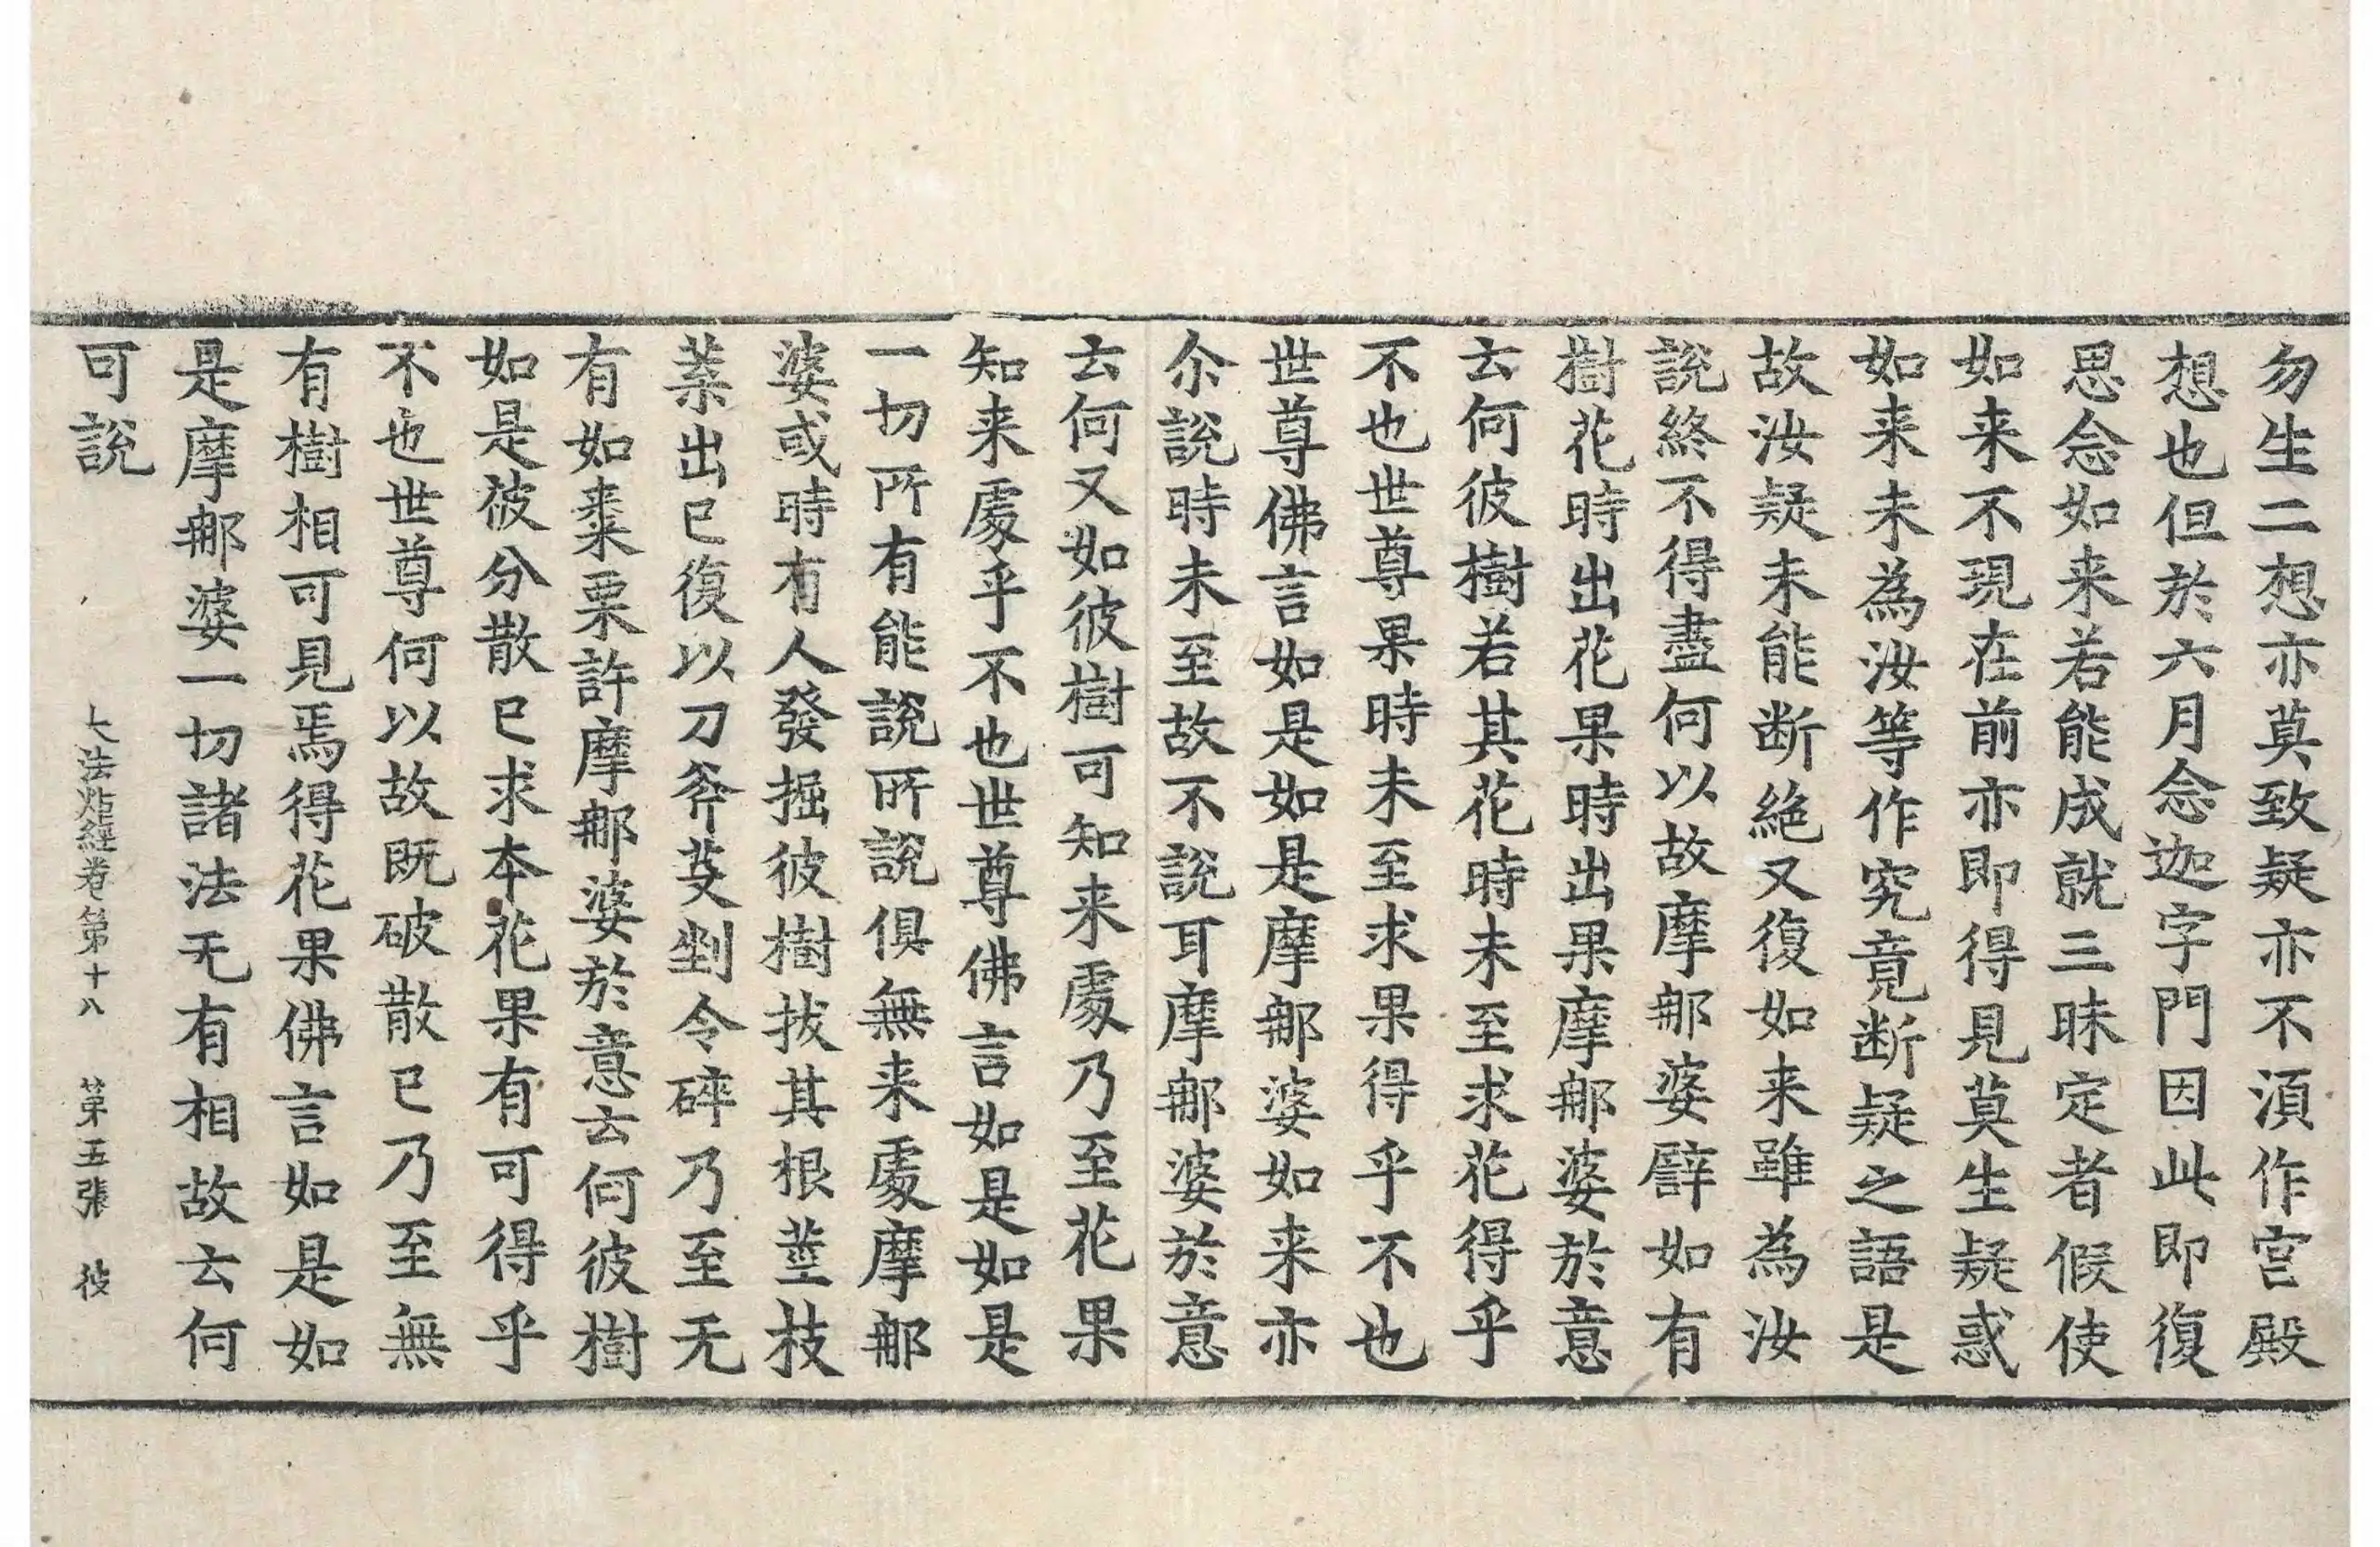 勿生二想亦莫致疑亦不湏作宮殿
想也但於六月念迦字門因此即復
思念如来若能成就三昧定者假使
如来不現在前亦即得見莫生疑惑
如来未為汝等作究竟断疑之語是
故汝疑未能断絶又復如来雖為汝
說終不得盡何以故摩郍婆譬如有
樹花時出花果時出果摩郍婆於意
云何彼樹若其花時未至求花得乎
不也世尊果時未至求果得乎不也
世尊佛言如是如是摩郍婆如来亦
尒說時未至故不說耳摩郍婆於意
云何又如彼樹可知来處乃至花果
知来處乎不也世尊佛言如是如是
一切所有能說所說俱無来處摩郍
婆或時有人發掘彼樹拔其根莖枝
葉出已復以刀斧芟剉令碎乃至无
有如棗栗許摩郍婆於意云何彼樹
如是彼分散已求本花果有可得乎
不也世尊何以故既破散已乃至無
有樹相可見焉得花果佛言如是如
是摩郍婆一切諸法无有相故云何
可說
大法炬經卷第十八 第五張 彼